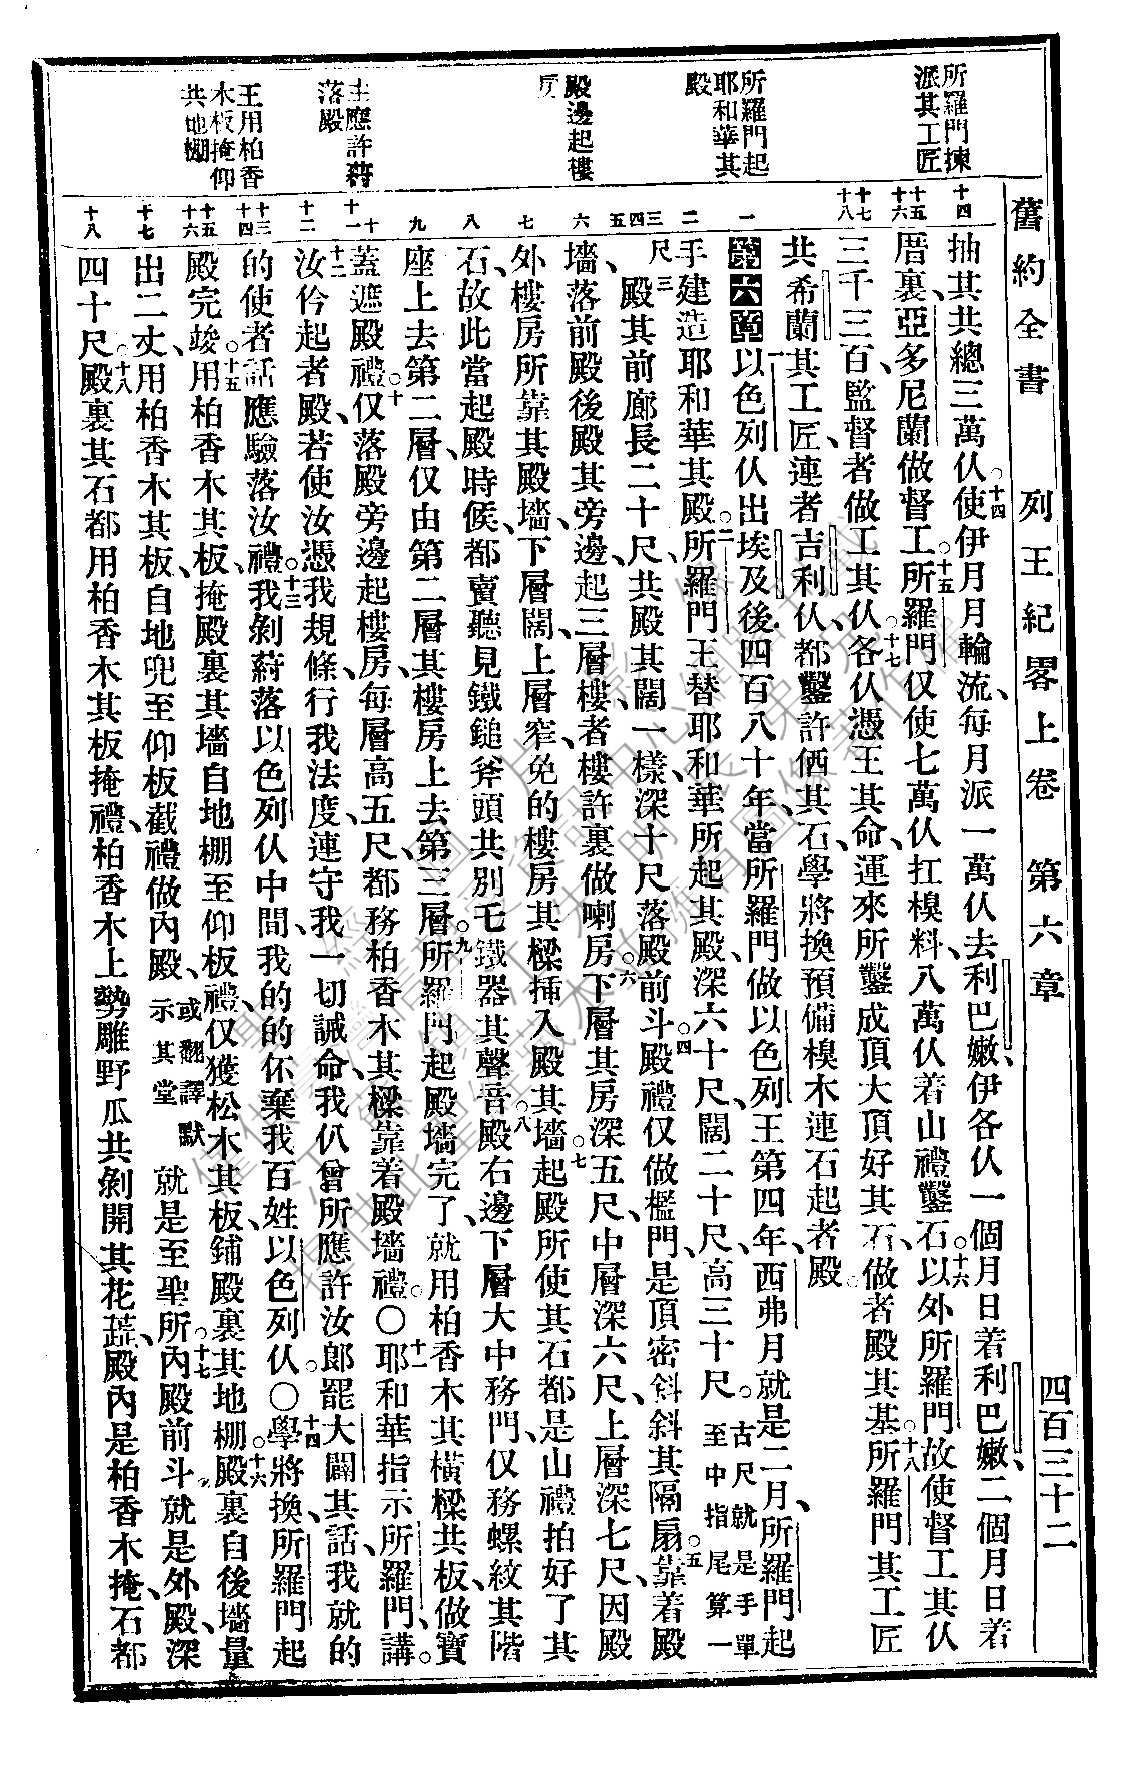 舊約全書 列王紀畧上卷 第六章 四百三十二
所羅門揀
派其工匠
所羅門起
耶和華其
殿
殿邊起樓
房
主應許蒞
落殿
王用柏香
木板掩仰
共地棚
十四
十五
十六
十七
十八
一
二
三
四
五
六
七
八
九
十
十一
十二
十三
十四
十五
十六
十七
十八
抽其共總三萬仈。十四使伊月月輪流、每月派一萬仈去利巴嫩、伊各仈一個月日着利巴嫩、二個月日着
厝裏、亞多尼蘭做督工。十五所羅門仅使七萬仈扛模料、八萬仈着山禮鑿石。十六以外所羅門故使督工其仈
三千三百、監督者做工其仈。十七各仈憑王其命、運來所鑿成頂大頂好其石、做者殿其基。十八所羅門其工匠
共希蘭其工匠、連者吉利仈、都鑿許㐽其石、學將換預備模木連石起者殿。
第六章 一以色列仈出埃及後四百八十年、當所羅門做以色列王第四年、西弗月就是二月、所羅門起
手建造耶和華其殿。二所羅門王替耶和華所起其殿、深六十尺、闊二十尺、高三十尺。古尺就是手單至中指尾算一
尺三殿其前廊長二十尺、共殿其闊一樣、深十尺落殿前斗。四殿禮仅做檻門、是頂密斜斜其隔扇。五靠着殿
墻、落前殿後殿其旁邊、起三層樓、者樓許裏做喇房。六下層其房深五尺、中層深六尺、上層深七尺、因殿
外樓房所靠其殿墻、下層闊、上層窄、免的樓房其樑揷入殿其墻。七起殿所使其石都是山禮拍好了其
石、故此當起殿時候、都賣聽見鐵鎚斧頭共別乇鐵器其聲音。八殿右邊、下層大中務門、仅務螺紋其階
座上去第二層、仅由第二層其樓房上去第三層。九所羅門起殿墻完了、就用柏香木其橫樑共板、做寶
蓋遮殿禮。十仅落殿旁邊起樓房、每層高五尺、都務柏香木其樑靠着殿墻禮。〇十一耶和華指示所羅門講、
十二汝仱起者殿、若使汝憑我規條、行我法度、連守我一切誡命、我仈曾所應許汝郎罷大闢其話、我就的
的使者話應驗落汝禮。十三我剝蒞落以色列仈中間、我的的伓棄我百姓以色列仈。〇十四學將換所羅門起
殿完竣。十五用柏香木其板、掩殿裏其墻、自地棚至仰板禮、仅獲松木其板、鋪殿裏其地棚。十六殿裏自後墻量
出二丈、用柏香木其板、自地兜至仰板截禮做內殿、或翻譯默示其堂 就是至聖所。十七內殿前斗就是外殿、深
四十尺。十八殿裏其石都用柏香木其板掩禮、柏香木上勢雕野瓜共剝開其花蕋、殿內是柏香木掩、石都